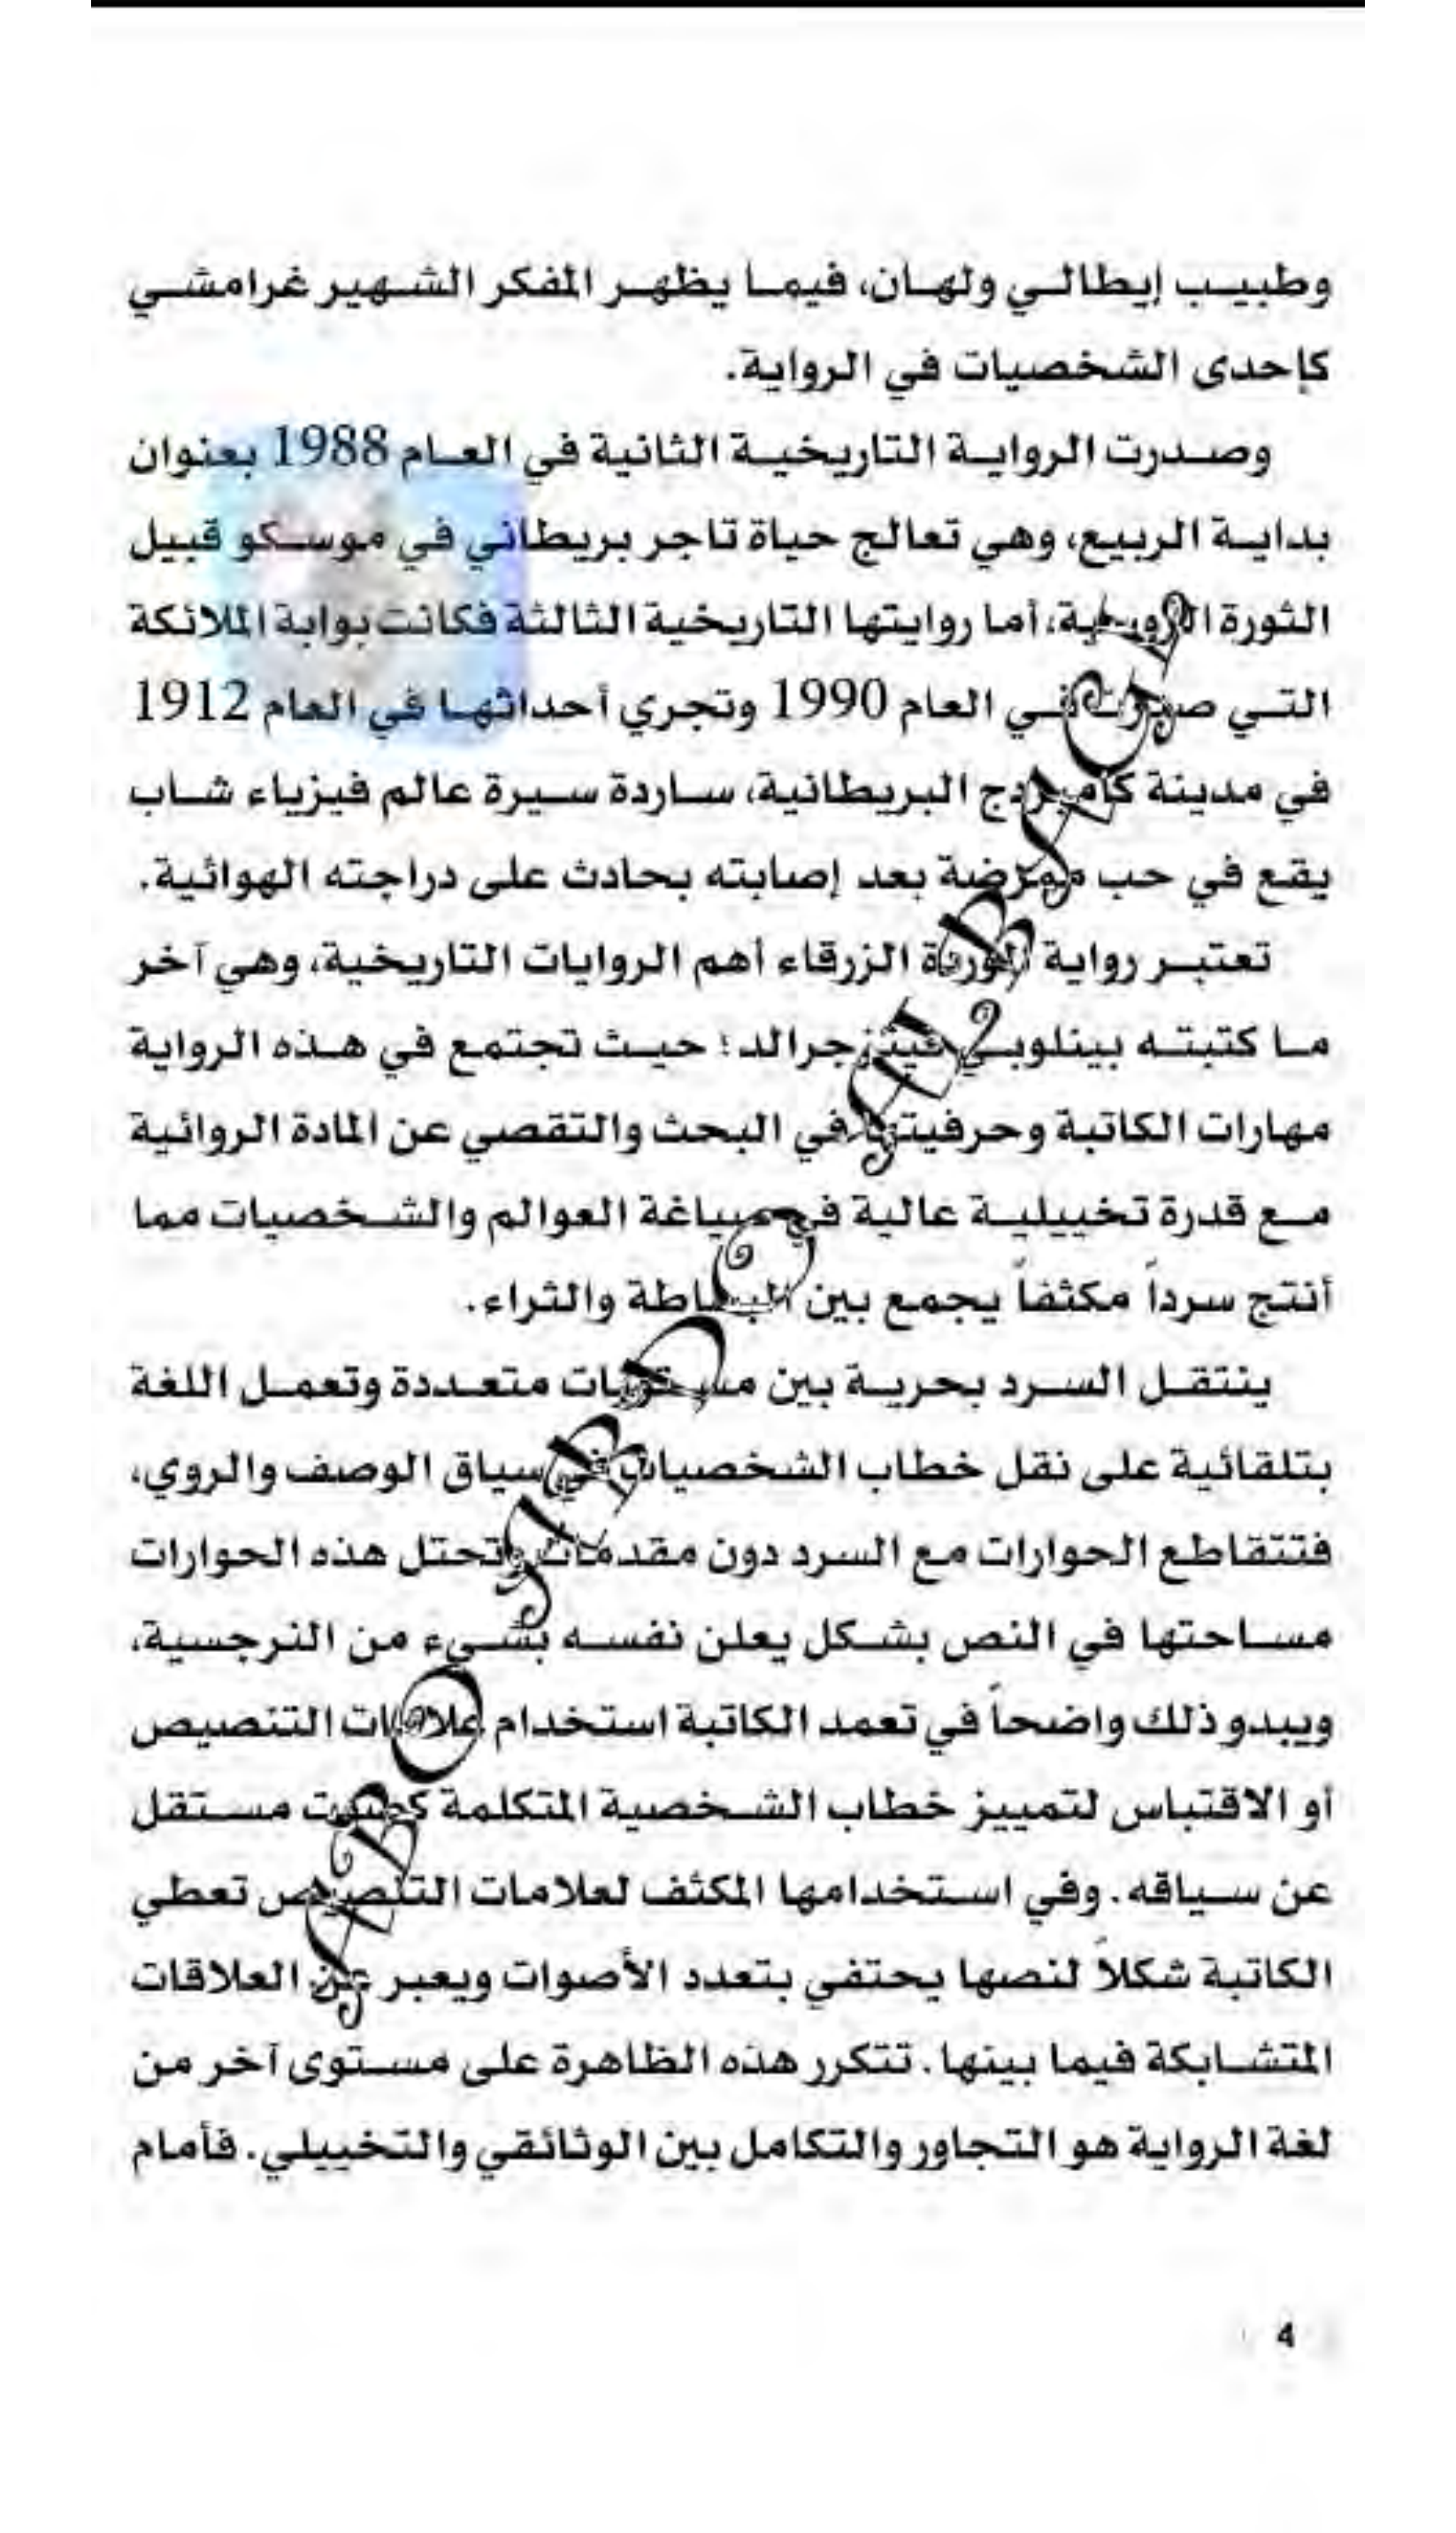 وطبيب إيطالي ولهان، فيما يظهر المفكر الشهير غرامشي
كإحدى الشخصيات في الرواية.
وصدرت الرواية التاريخية الثانية في العام 1988 بعنوان
بداية الربيع، وهي تعالج حياة تاجر بريطاني في موسكو قبيل
الثورة الروسية، أما روايتها التاريخية الثالثة فكانت بوابة الملائكة
التي صدرت في العام 1990 وتجري أحداثها في العام 1912
في مدينة كامبردج البريطانية، ساردة سيرة عالم فيزياء شاب
يقع في حب ممرضة بعد إصابته بحادث على دراجته الهوائية.
تعتبر رواية الوردة الزرقاء أهم الروايات التاريخية، وهي آخر
ما كتبته بينلوبي فيتزجرالد؛ حيث تجتمع في هذه الرواية
مهارات الكاتبة وحرفيتها في البحث والتقصي عن المادة الروائية
مع قدرة تخييلية عالية في صياغة العوالم والشخصيات مما
أنتج سرداً مكثفاً يجمع بين البساطة والثراء.
ينتقل السرد بحرية بين مستويات متعددة وتعمل اللغة
بتلقائية على نقل خطاب الشخصيات في سياق الوصف والروي،
فتتقاطع الحوارات مع السرد دون مقدمات وتحتل هذه الحوارات
مساحتها في النص بشكل يعلن نفسه بشيء من النرجسية،
ويبدو ذلك واضحاً في تعمد الكاتبة استخدام علامات التنصيص
أو الاقتباس لتمييز خطاب الشخصية المتكلمة كصوت مستقل
عن سياقه. وفي استخدامها المكثف لعلامات التنصيص تعطي
الكاتبة شكلاً لنصها يحتفي بتعدد الأصوات ويعبر عن العلاقات
المتشابكة فيما بينها. تتكرر هذه الظاهرة على مستوى آخر من
لغة الرواية هو التجاور والتكامل بين الوثائقي والتخييلي. فأمام
4